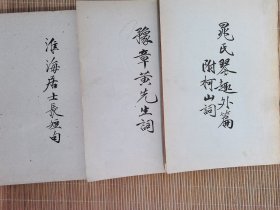 晁氏琴趣外篇
附柯山詞
豫章黄先生詞
淮海居士長短句